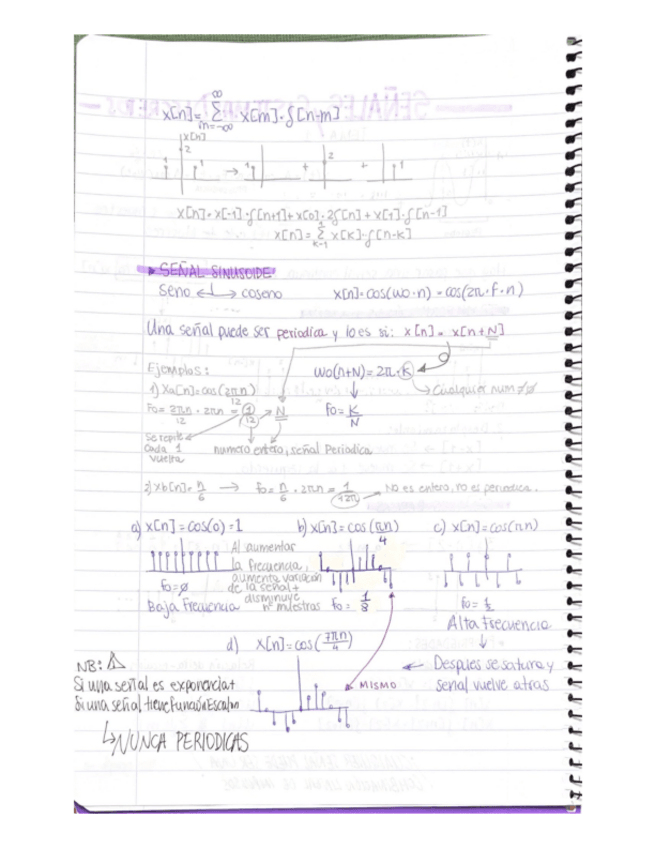 x[n] = ∞ Σ m=-∞ x[m]·δ[n-m]
x[n]
2
1 1 → 1 + 2 + 1
x[n] = x[-1]·δ[n+1] + x[0]·2δ[n] + x[1]·δ[n-1]
x[n] = 1 Σ k=-1 x[k]·δ[n-k]
▸ SEÑAL SINUSOIDE
Seno ↲↳ coseno x[n] = cos(ωo·n) = cos(2π·f·n)
Una señal puede ser periodica y lo es si: x[n] = x[n+N]
Ejemplos: ωo(n+N) = 2π·K
1) Xa[n] = cos(2πn/12) → Cualquier num ≠ ø
Fo = 2πn/12 · 2πn = 1/12 → N fo = K/N
Se repite cada 1 vuelta
numero entero, señal Periodica
2) Xb[n] = n/6 → fo = n/6 · 2πn = 1/12π → No es entero, no es periodica.
a) x[n] = cos(0) = 1 b) x[n] = cos(πn/4) c) x[n] = cos(πn)
Al aumentar la frecuencia, aumenta variación de la señal + disminuye nº muestras
fo = ø
Baja Frecuencia
fo = 1/8
fo = ½
Alta Frecuencia
d) x[n] = cos(7πn/4)
← Despues se satura y señal vuelve atras
MISMO
NB: ⚠
Si una señal es exponencial +
Si una señal tiene función Escalón
↳ NUNCA PERIODICAS